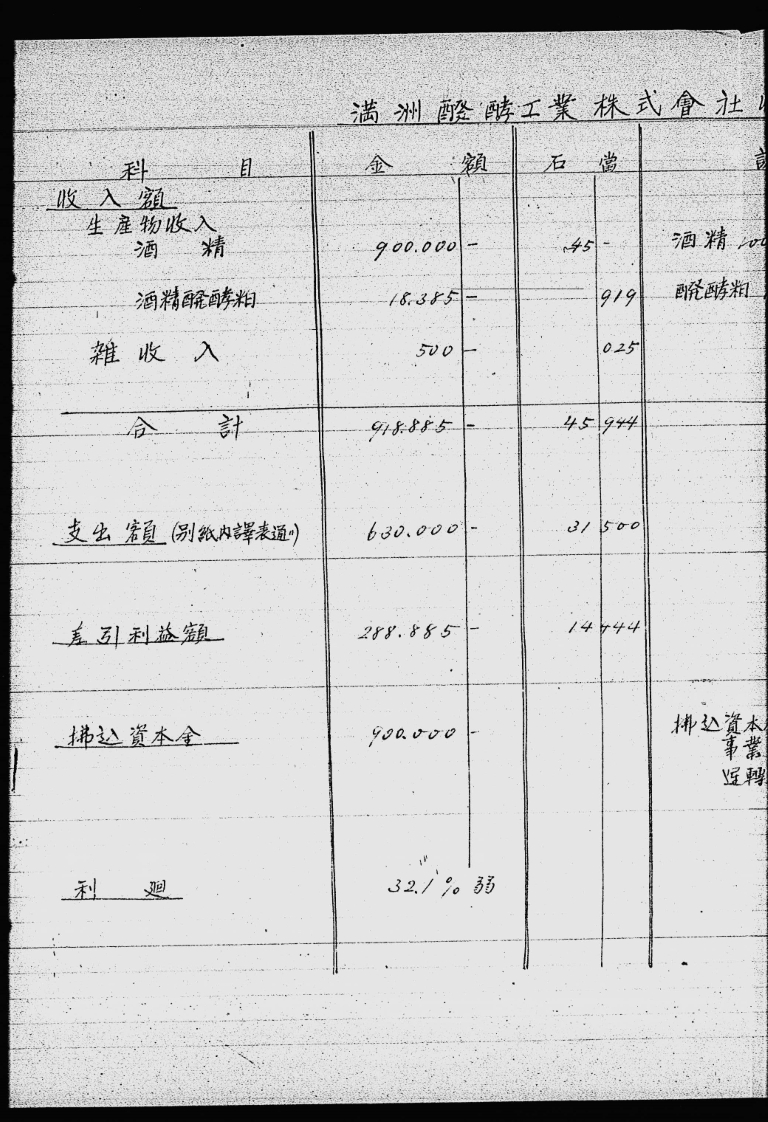 満洲醱酵工業株式會社
科 目 金 額 石 當
收入額
生産物收入
酒 精 900.000 - 45 - 酒精
酒精醱酵粕 18.385 - 919 醱酵粕
雑收入 500 - 025
合 計 918.885 - 45 944
支出額 (別紙内譯表通リ) 630.000 - 31 500
差引利益額 288.885 - 14 444
拂込資本金 900.000 - 拂込資本
事業
運轉
利 廻 32.1% 弱